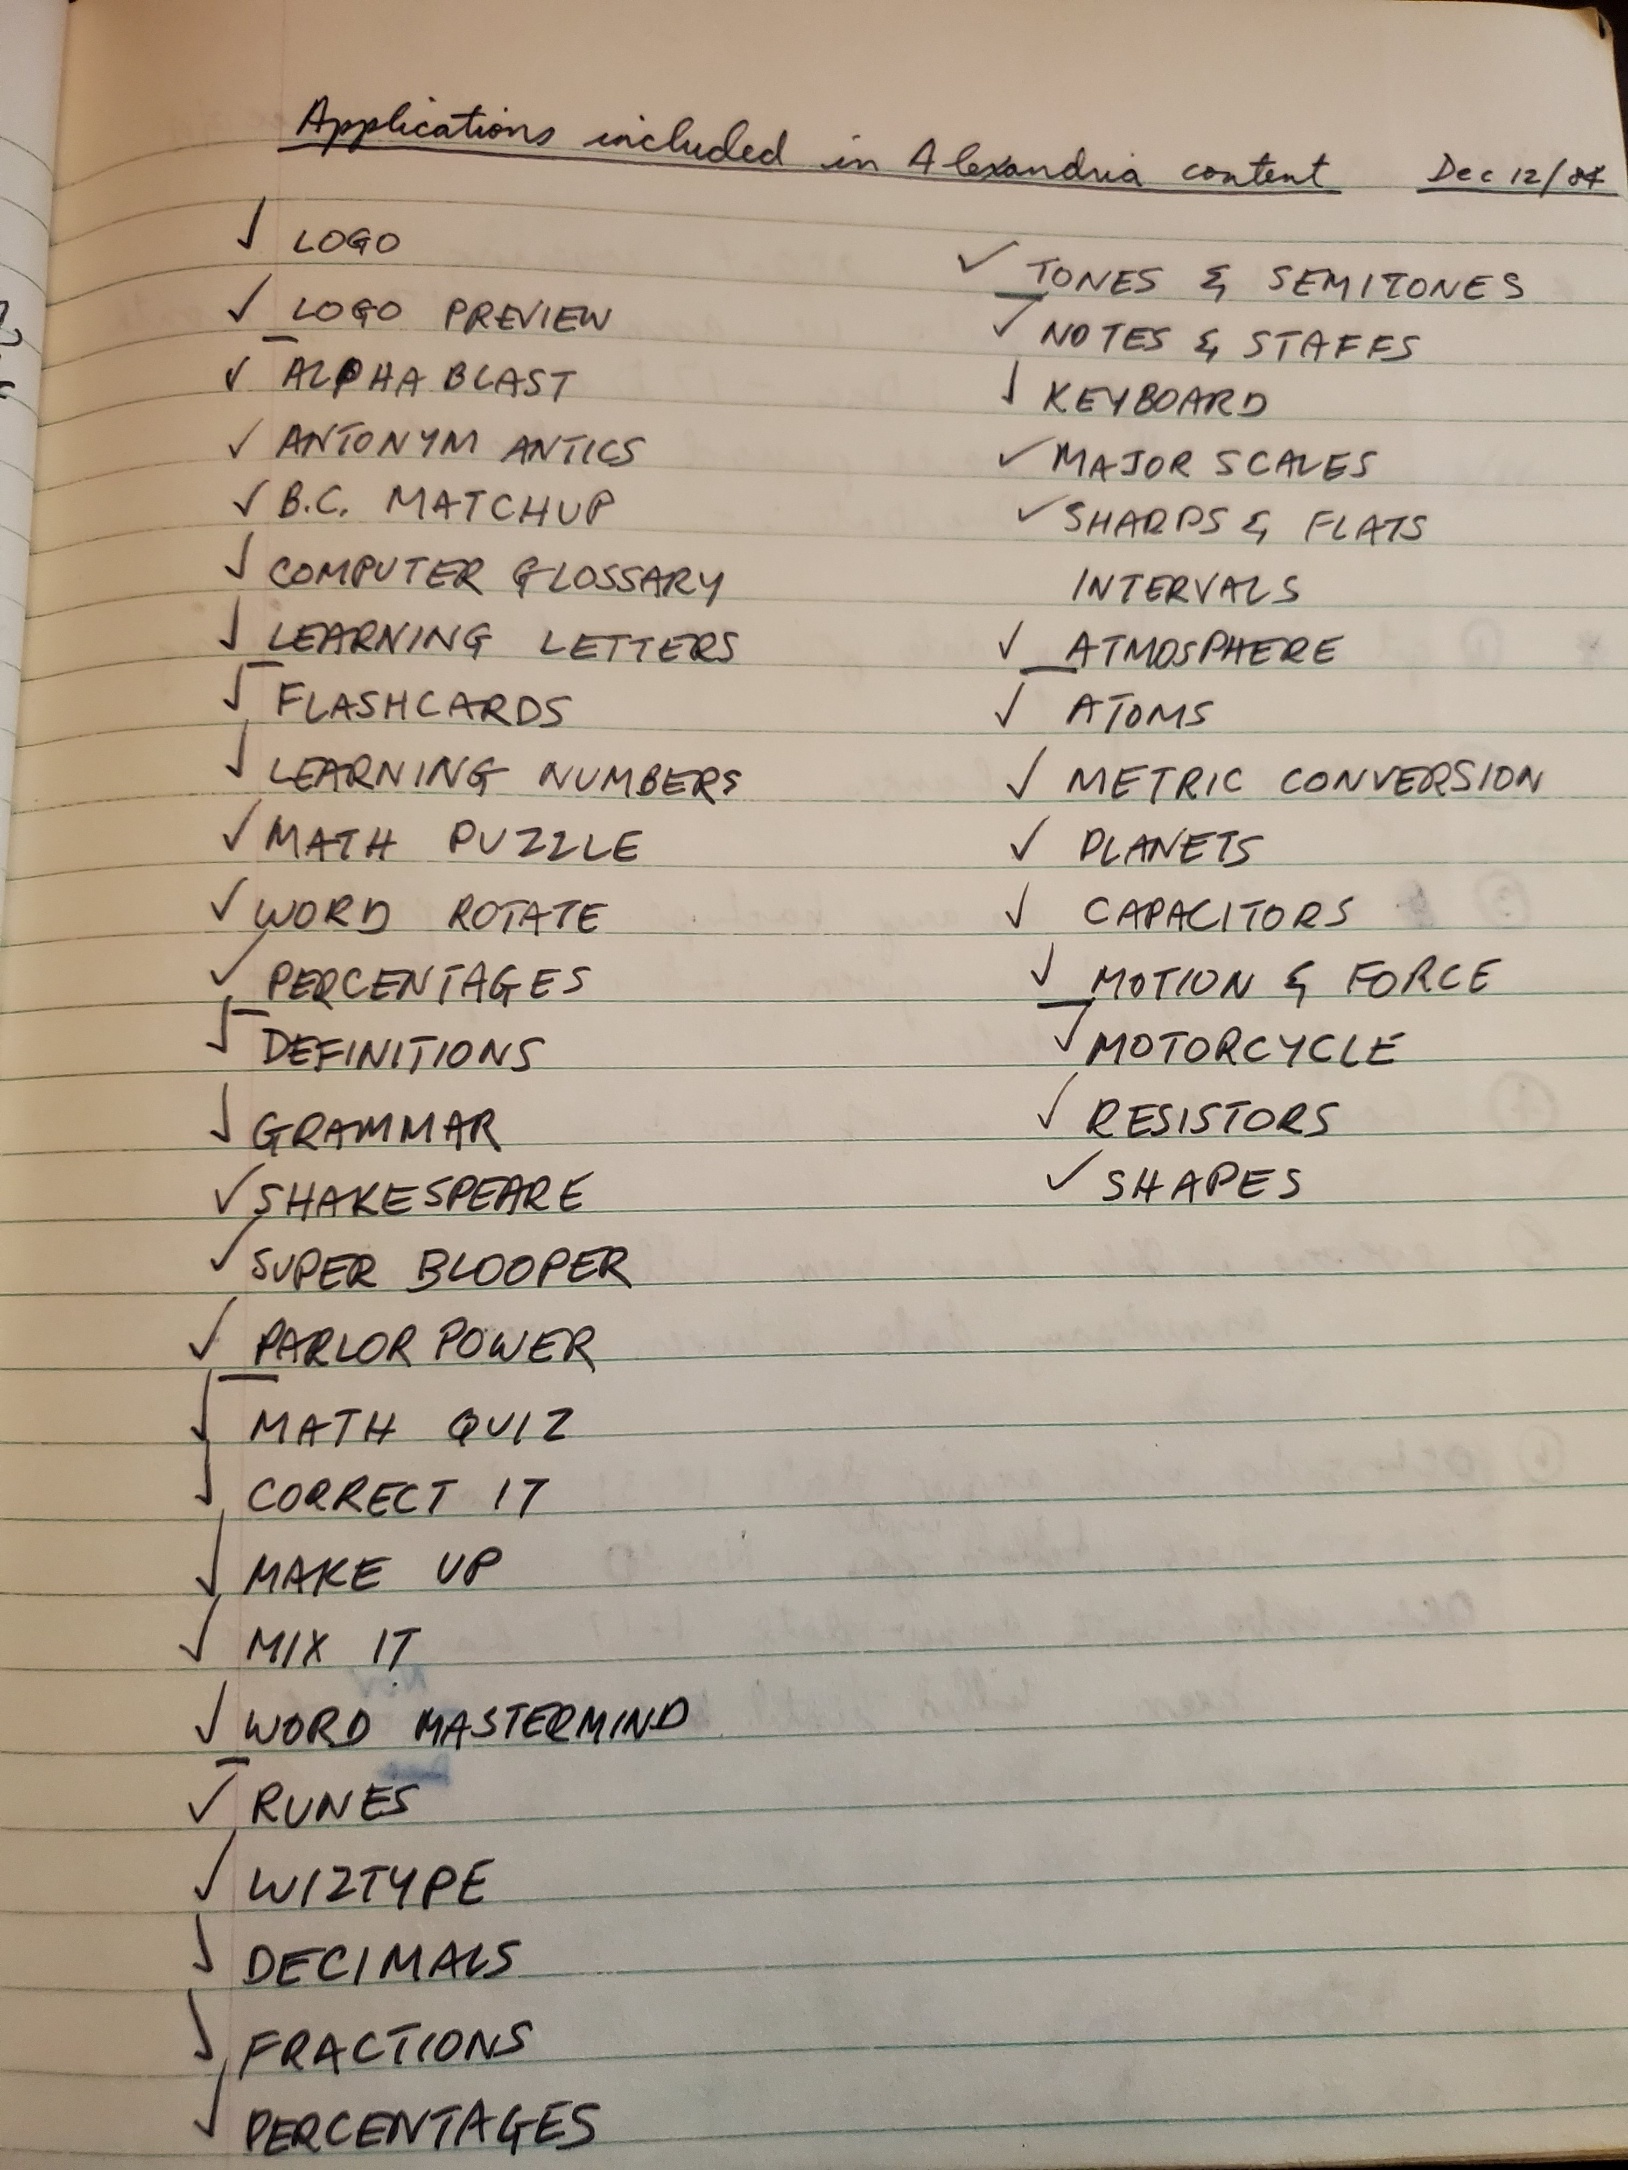 Applications included in Alexandria content Dec 12/84
✓ LOGO
✓ LOGO PREVIEW
✓ ALPHA BLAST
✓ ANTONYM ANTICS
✓ B.C. MATCHUP
✓ COMPUTER GLOSSARY
✓ LEARNING LETTERS
✓ FLASHCARDS
✓ LEARNING NUMBERS
✓ MATH PUZZLE
✓ WORD ROTATE
✓ PERCENTAGES
✓ DEFINITIONS
✓ GRAMMAR
✓ SHAKESPEARE
✓ SUPER BLOOPER
✓ PARLOR POWER
✓ MATH QUIZ
✓ CORRECT IT
✓ MAKE UP
✓ MIX IT
✓ WORD MASTERMIND
✓ RUNES
✓ WIZTYPE
✓ DECIMALS
✓ FRACTIONS
✓ PERCENTAGES
✓ TONES & SEMITONES
✓ NOTES & STAFFS
✓ KEYBOARD
✓ MAJOR SCALES
✓ SHARPS & FLATS
INTERVALS
✓ ATMOSPHERE
✓ ATOMS
✓ METRIC CONVERSION
✓ PLANETS
✓ CAPACITORS
✓ MOTION & FORCE
✓ MOTORCYCLE
✓ RESISTORS
✓ SHAPES